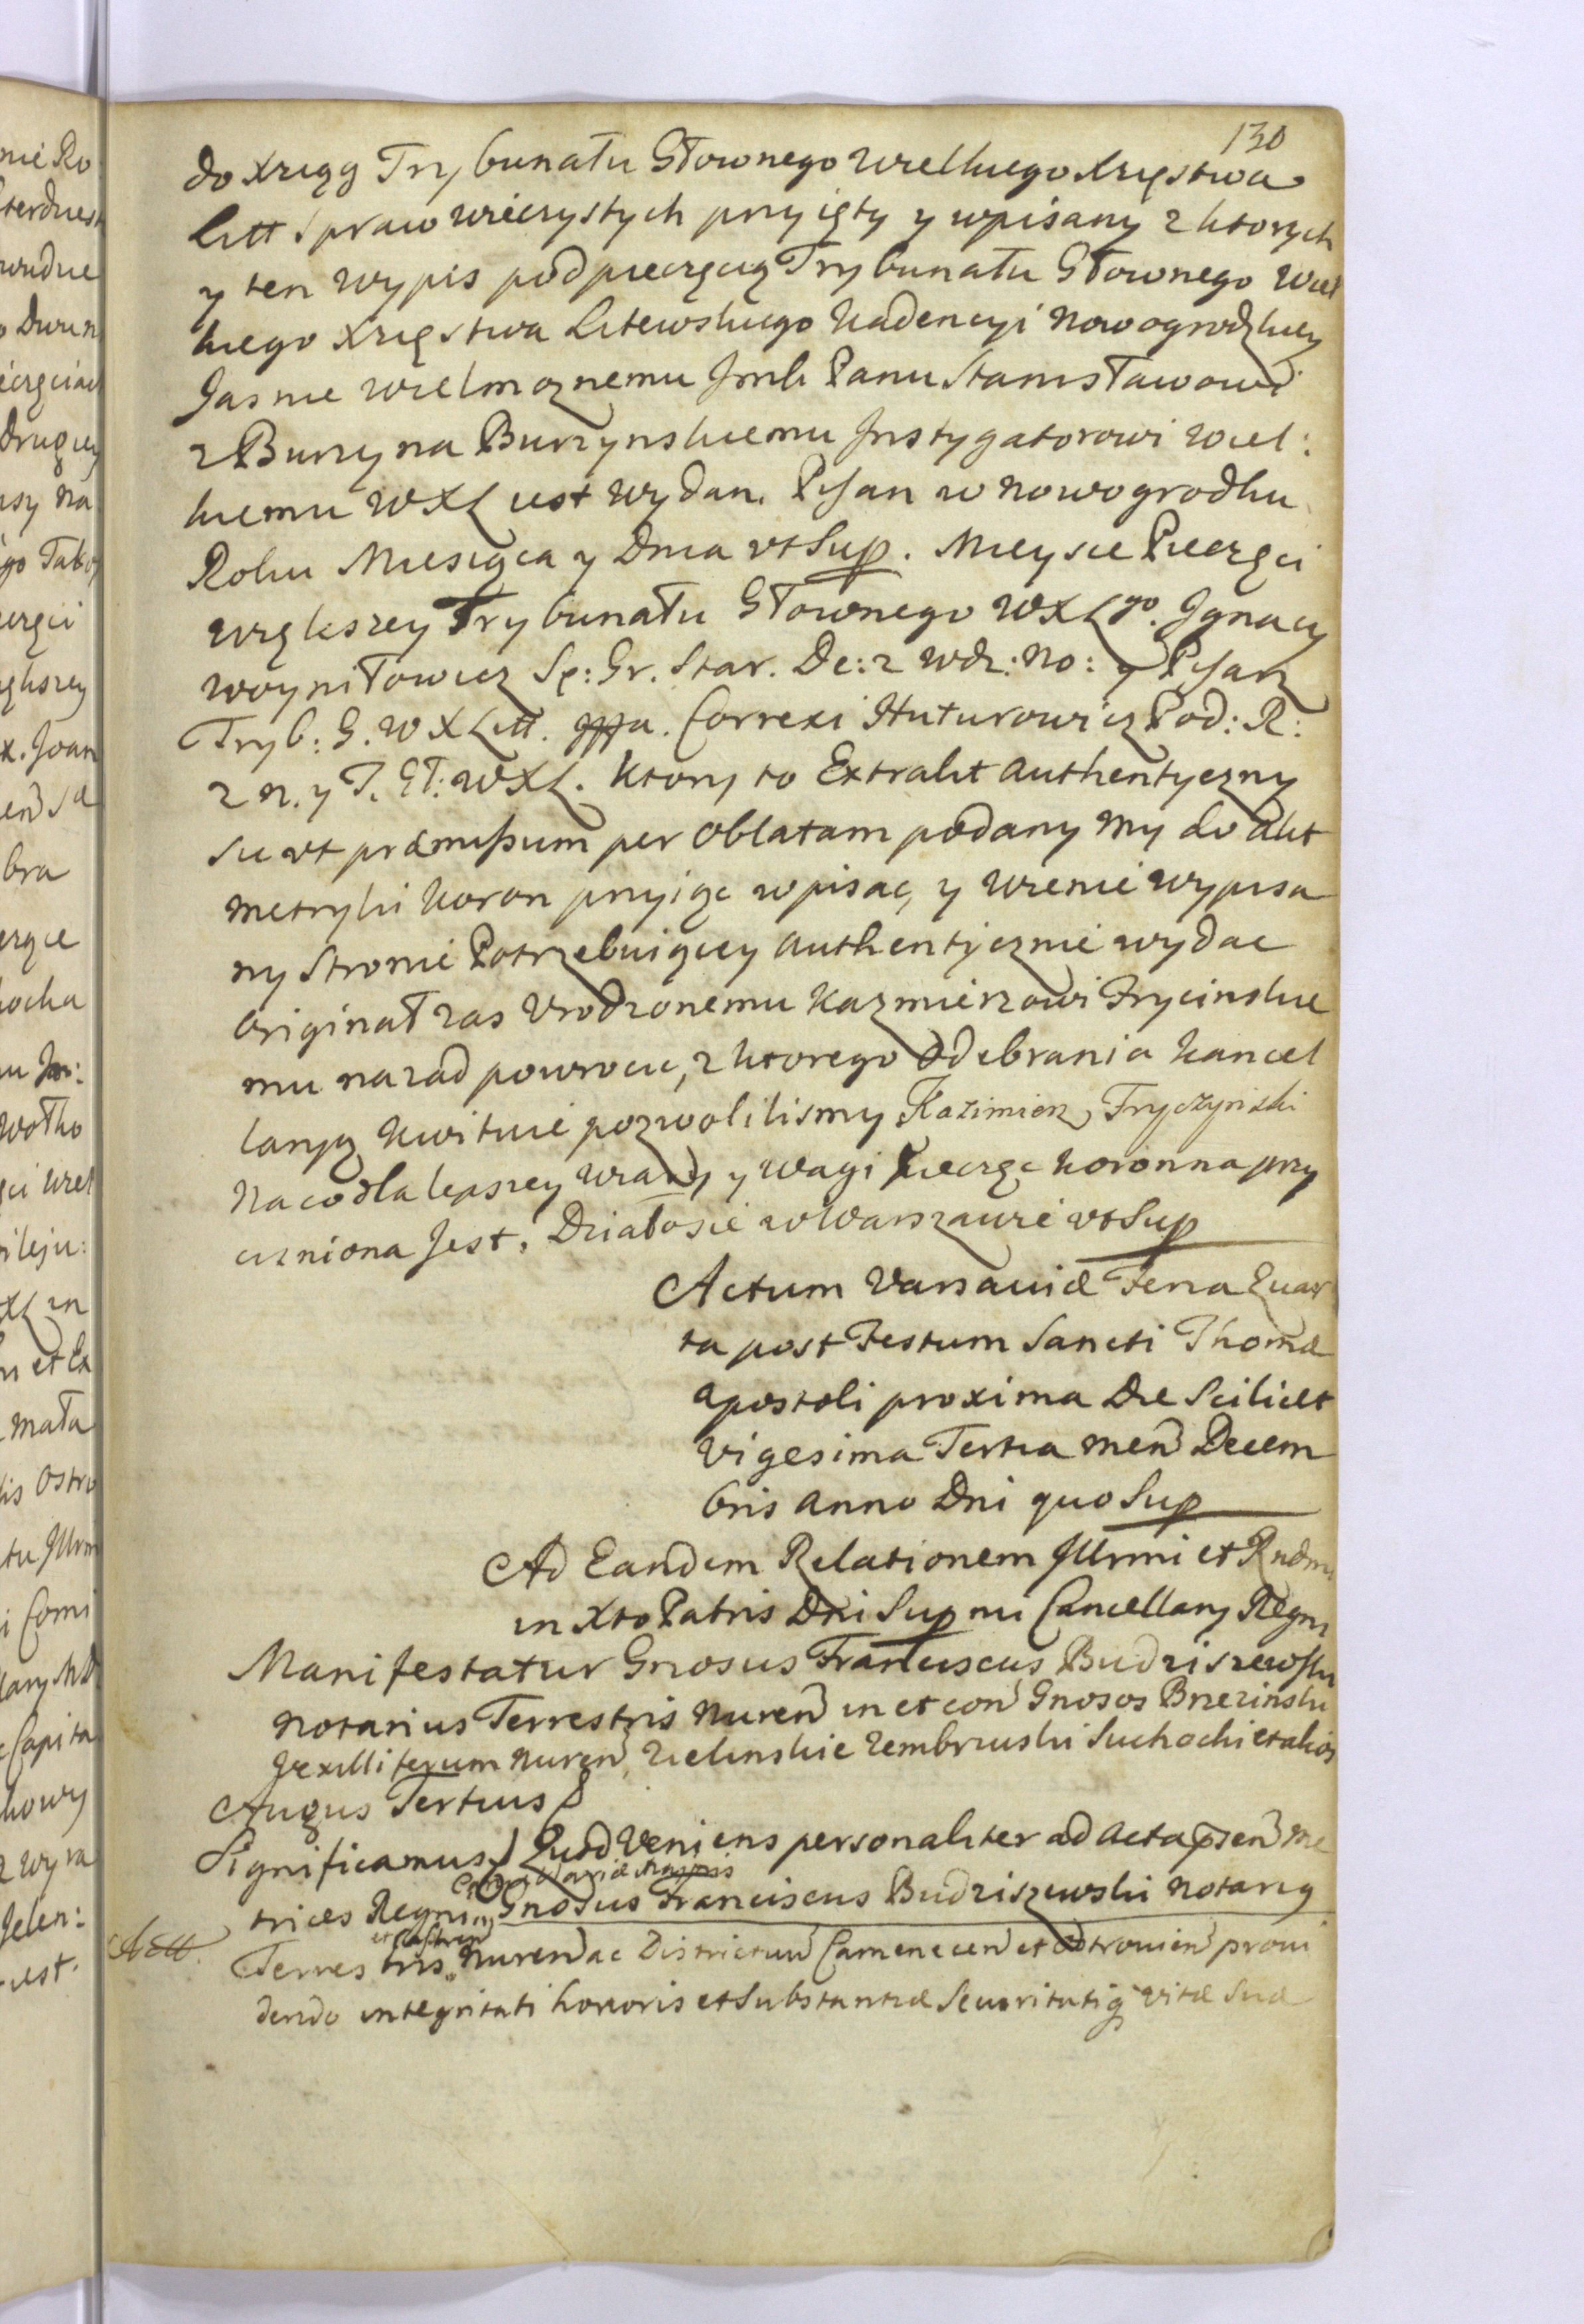 130
do Xziąg Trybunału Głownego Wielkiego Xzięstwa
Litt Spraw wieczystych przyięty y wpisany z ktorych
y ten Wypis pod pieczęcią Trybunału Głownego Wiel
kiego Xzięstwa Litewskiego Kadencyi Nowogrodzkiey
Jasnie Wielmoznemu Jmci Panu Stanisławowi
z Burzyna Burzynskiemu Instygatorowi Wiel:
kiemu WXL iest wydan. Pisan w Nowogrodku
Roku Miesiąca y Dnia vt Sup. Mieysce Pieczęci
większey Trybunału Głownego WXLgo. Ignacy
Woyniłowicz Sę: Gr. Star. De: z Wdz: No: y Pisarz
Tryb: G. W X Litt. Correxi Huturowicz Pod: R:
z n. y T. Gł: WXL. Ktory to Extrakt Authentyczny
sic vt præmissum per Oblatam podany My do Akt
Metryki Koron przyiąc wpisac, y wiernie wypisa
ny Stronie Potrzebuiącey Authentycznie wydac
Originał zas Vrodzonemu Kazmierzowi Fryczinskie
mu nazad powrocic, z ktorego Odebrania Kancel
laryą kwituie pozwolilismy Kazimierz Fryczyński
Na co dla lepszey wiary y wagi Pieczęc Koronna przy
cisniona Jest. Działo sie w Warszawie vt Sup
Actum Varsaviæ Feria Quar
ta post Festum Sancti Thomæ
Apostoli proxima Die Scilicet
Vigesima Tertia Men Decem
bris Anno Dni quo Sup
Ad Eandem Relationem Illrmi et Rndmi
in Xto Patris Dni Sup mi Cancellary Regni
Manifestatur Gnosus Franciscus Budziszewski
Notarius Terrestris Nuren in et con Gnosos Brzezinski
Vexilliferum Nuren, Zielinskie Zembrzuski Suchocki et alios
Augus Tertius
Significamus Quod Veniens personaliter ad Acta psen Me
trices Regni Gnosus Franciscus Budziszewski Notarig
et Castren
Terrestris Nuren ac Districtuu Camenecen et Ostrovien provi
dendo integritati honoris et Substantiæ Securitatig vitæ suæ